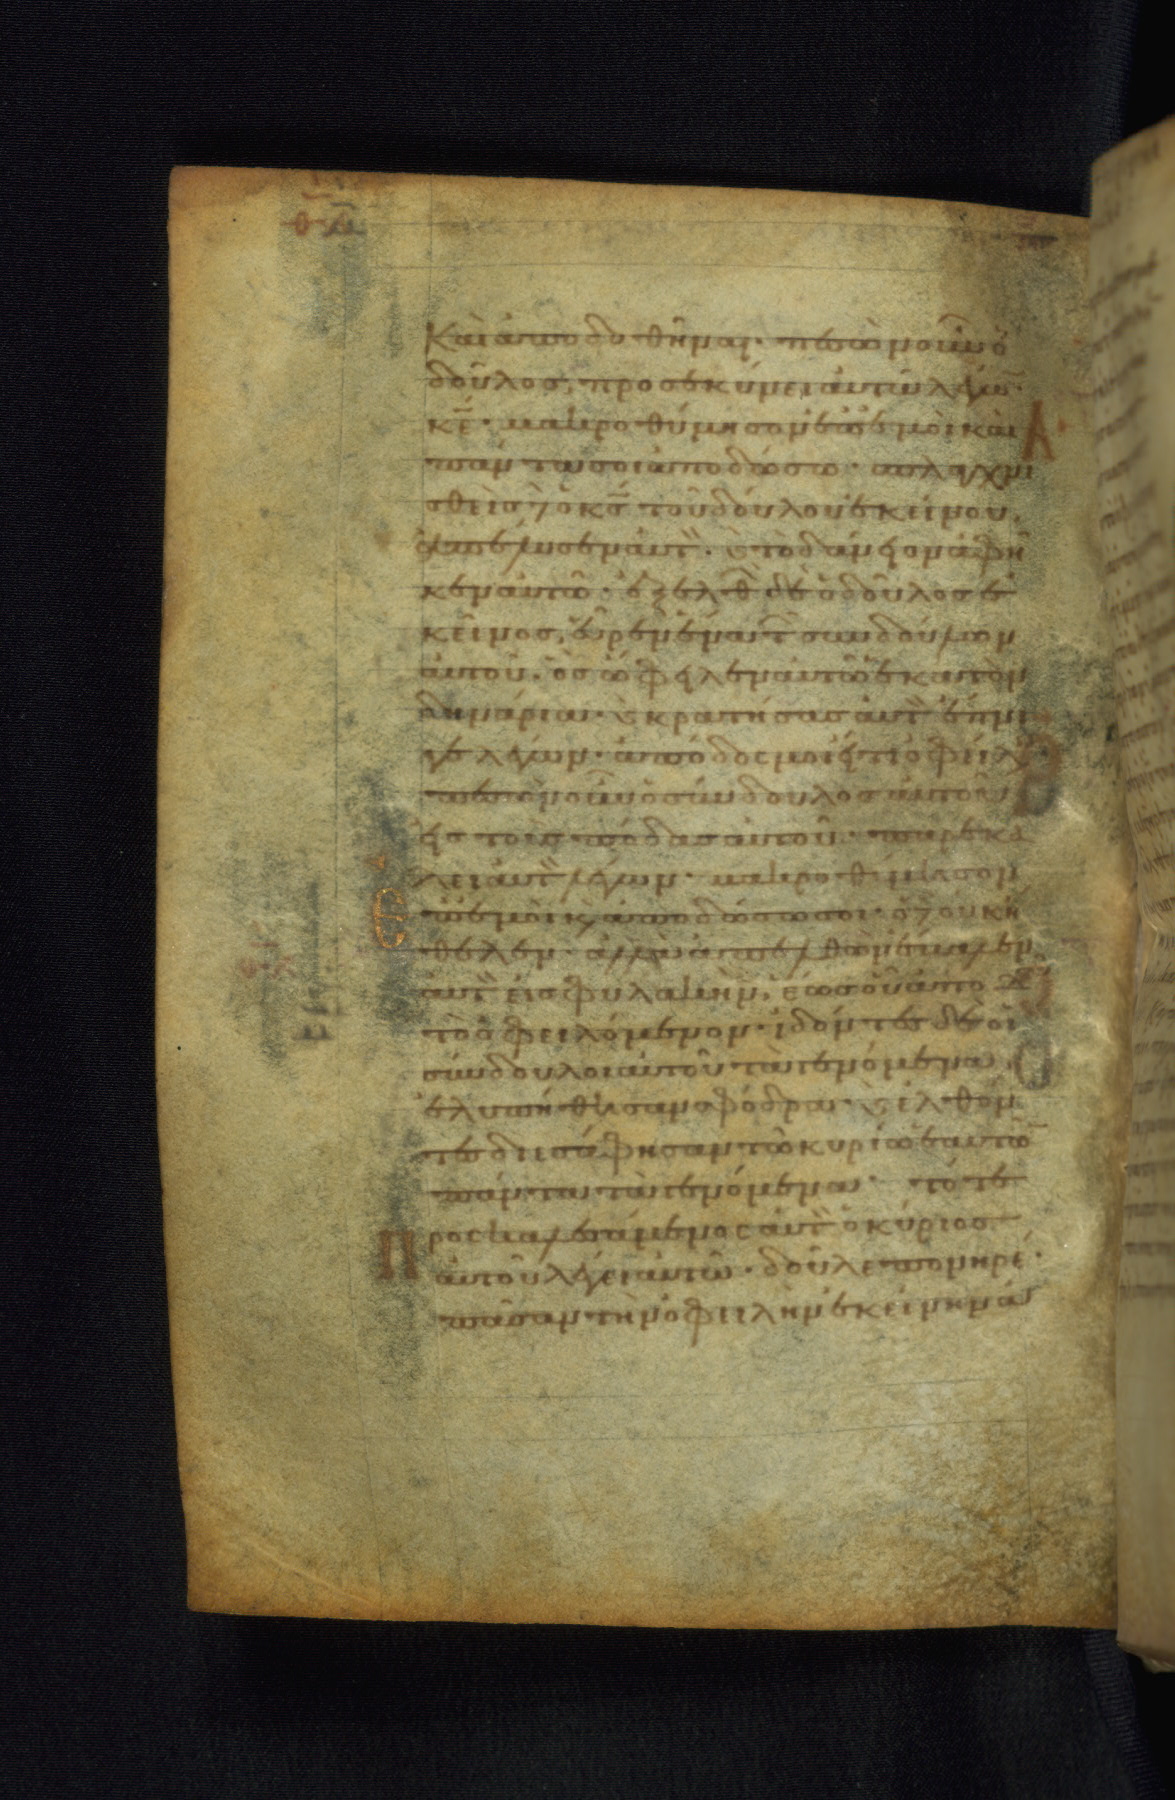 καὶ ἀποδοθῆναι· πεσὼν οὖν ὁ
δοῦλος, προσεκύνει αὐτῶ λέγων·
κε̄· μακροθύμησον ἐπ' ἐμοὶ καὶ
πάντα σοι ἀποδώσω· σπλαγχνι
σθεὶς δὲ ὁ κς̄ τοῦ δούλου ἐκείνου,
ἀπέλυσεν αὐτ· καὶ τὸ δάνειον ἀφῆ
κεν αὐτῶ· ἐξελθ δὲ ὁ δοῦλος ἐ
κεῖνος, εὗρεν ἕνα τ συνδούλων
αὐτοῦ· ὃς ὤφειλεν αὐτῶ ἑκατὸν
δηνάρια· καὶ κρατήσας αὐτ ἔπνι
γε λέγων· ἀπόδος μοι εἴ τι ὀφείλ
πεσὼν οὖν ὁ σύνδουλος αὐτοῦ
εἰς τοὺς πόδας αὐτοῦ· παρεκά
λει αὐτ λέγων· μακροθύμησον
ἐπ' ἐμοὶ κ ἀποδώσω σοι· ὁ δὲ οὐκ ἤ
θελεν· ἀλλὰ ἀπελθὼν ἔβαλεν
αὐτ εἰς φυλακὴν, ἕως οὗ ἀποδ
τὸ ὀφειλόμενον· ἰδόντες δὲ οἱ
σύνδουλοι αὐτοῦ τὰ γενόμενα,
ἐλυπήθησαν σφόδρα· καὶ ἐλθόν
τες διεσάφησαν τῶ κυρίω ἑαυτῶ
πάντα τὰ γενόμενα· τότε
Προσκαλεσάμενος αὐτ ὁ κύριος
αὐτοῦ λέγει αὐτῶ· δοῦλε πονηρέ·
πᾶσαν τὴν ὀφειλὴν ἐκείνην ἀ